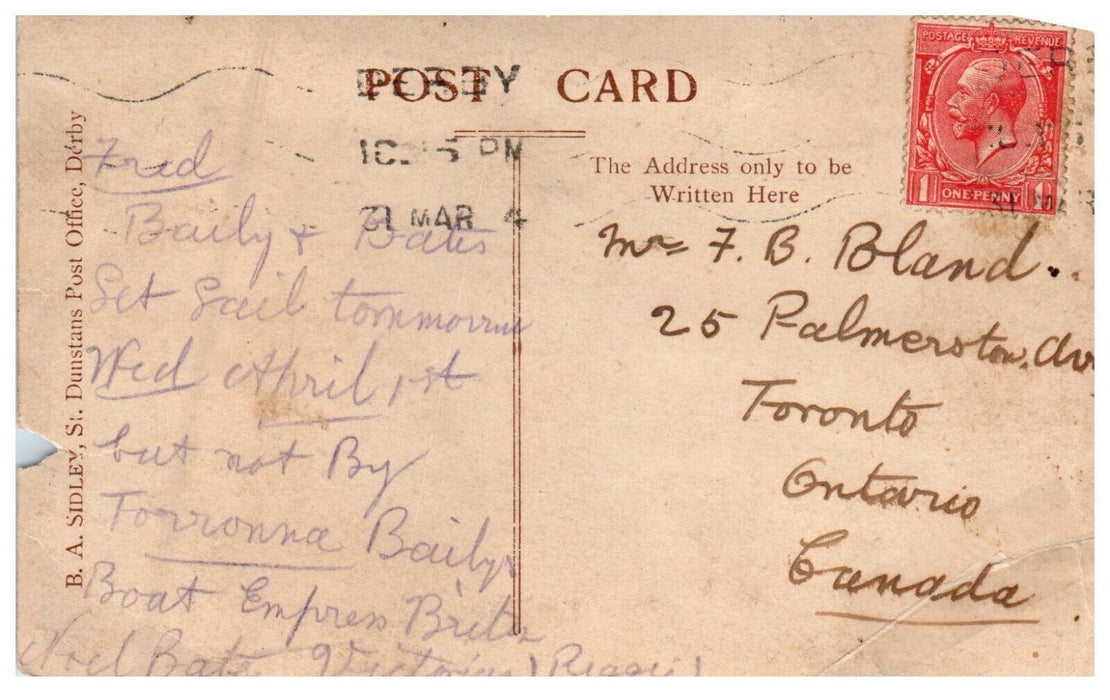 POST CARD
DERBY
10 15 PM
31 MAR 4
POSTAGE REVENUE
1 ONE PENNY 1
The Address only to be
Written Here
B. A. SIDLEY, St. Dunstans Post Office, Derby
Fred
Baily + Bates
Set Sail tommorrow
Wed April 1st
but not By
Torronna Bailys
Boat Empress Britn
Noel Bate Victorian (Reggie)
Mr F. B. Bland
25 Palmerston. Av
Toronto
Ontario
Canada